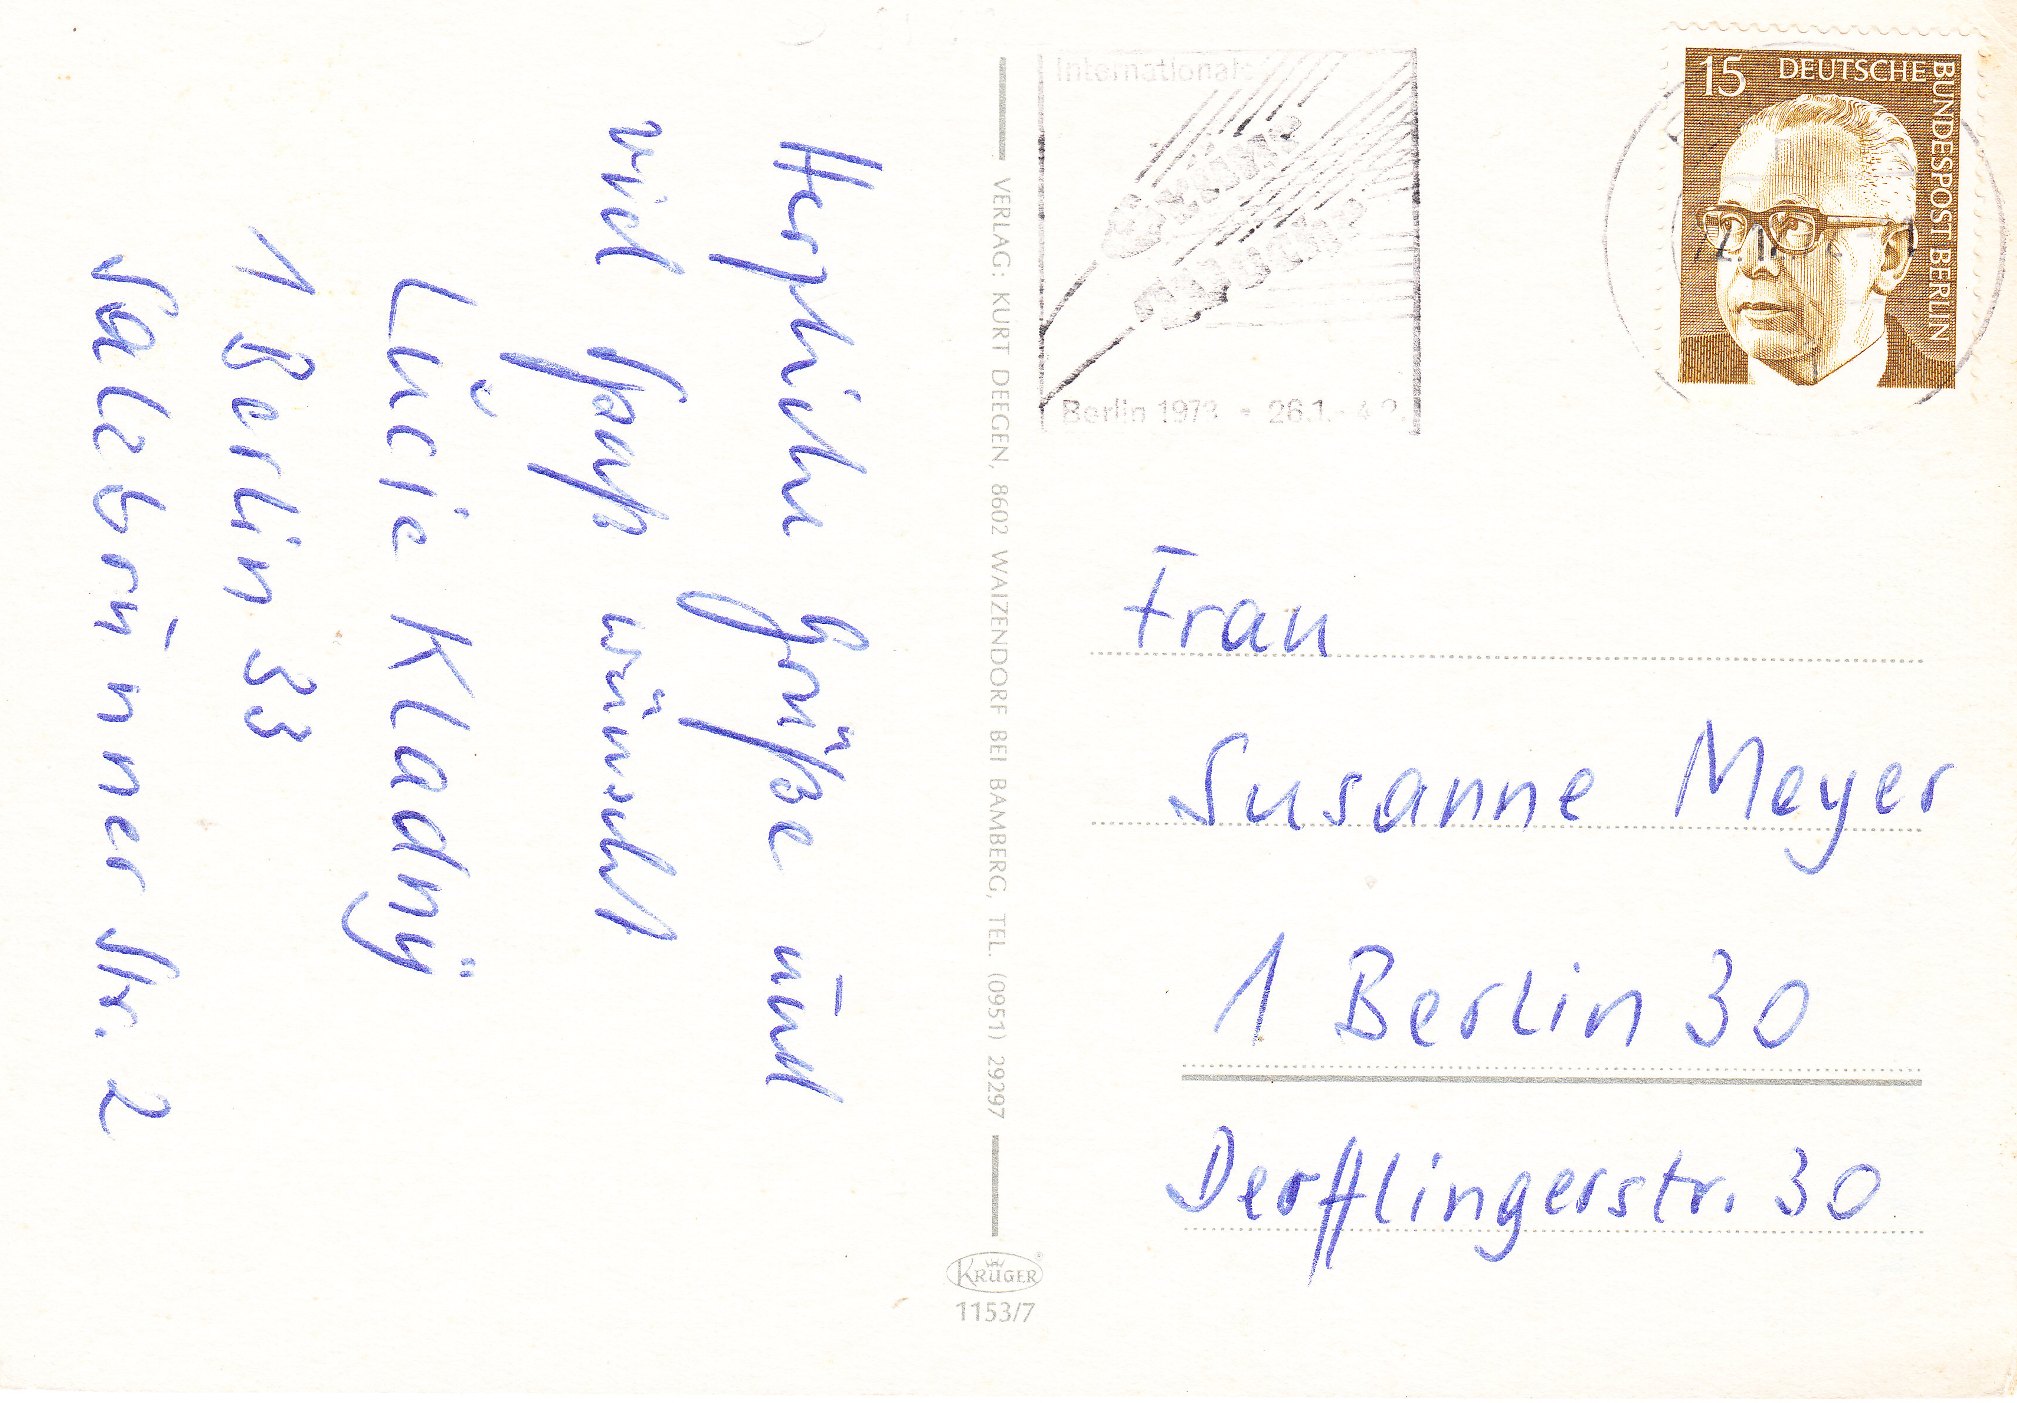 Herzliche Grüße und
viel Spaß wünscht
Lucie Kladny
1 Berlin 33
Salzbrunner Str. 2
VERLAG: KURT DEEGEN, 8602 WAIZENDORF BEI BAMBERG, TEL. (0951) 29297
KRÜGER
1153/7
Berlin 1973 • 26.1.-4.2.
15 DEUTSCHE BUNDESPOST BERLIN
Frau
Susanne Meyer
1 Berlin 30
Derfflingerstr. 30